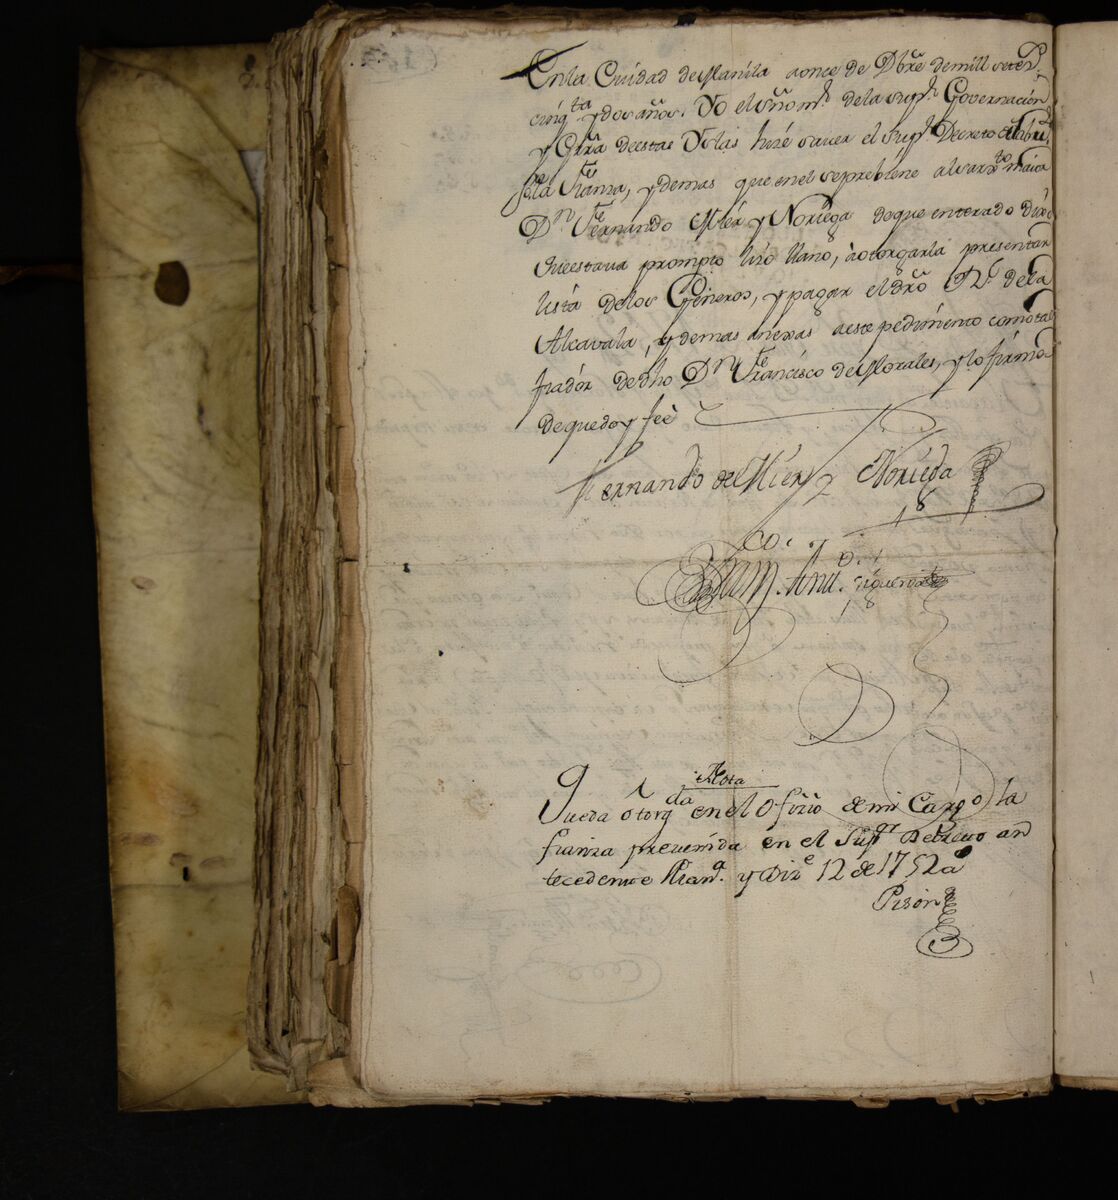 En la Ciudad de Manila a once de Dbre de mill setes.
cinqta y dos años. Yo el esño mr. de la supr. Governacion
y Grra de estas Yslas hize saver el supr. Decreto de
se la fianza, y demas que en el se previene al sarxto maior
Dn Fernando Mier y Noriega de que enterado dixo
que estava prompto liso llano, à otorgarla presentar
lista de los Generos, y pagar el dro Rl. de la
Alcavala, y demas anexas a este pedimento como tal
fiador de dho Dn Francisco de Morales, y lo firmó
de que doy feè
Fernando de Mier y Noriega
Nota
Queda ôtorgda en el ofizio de mi Cargo la
fianza prevenida en el Supor Decreto an
tecedente Mana. y Dize 12 de 1752 as
Pisòn